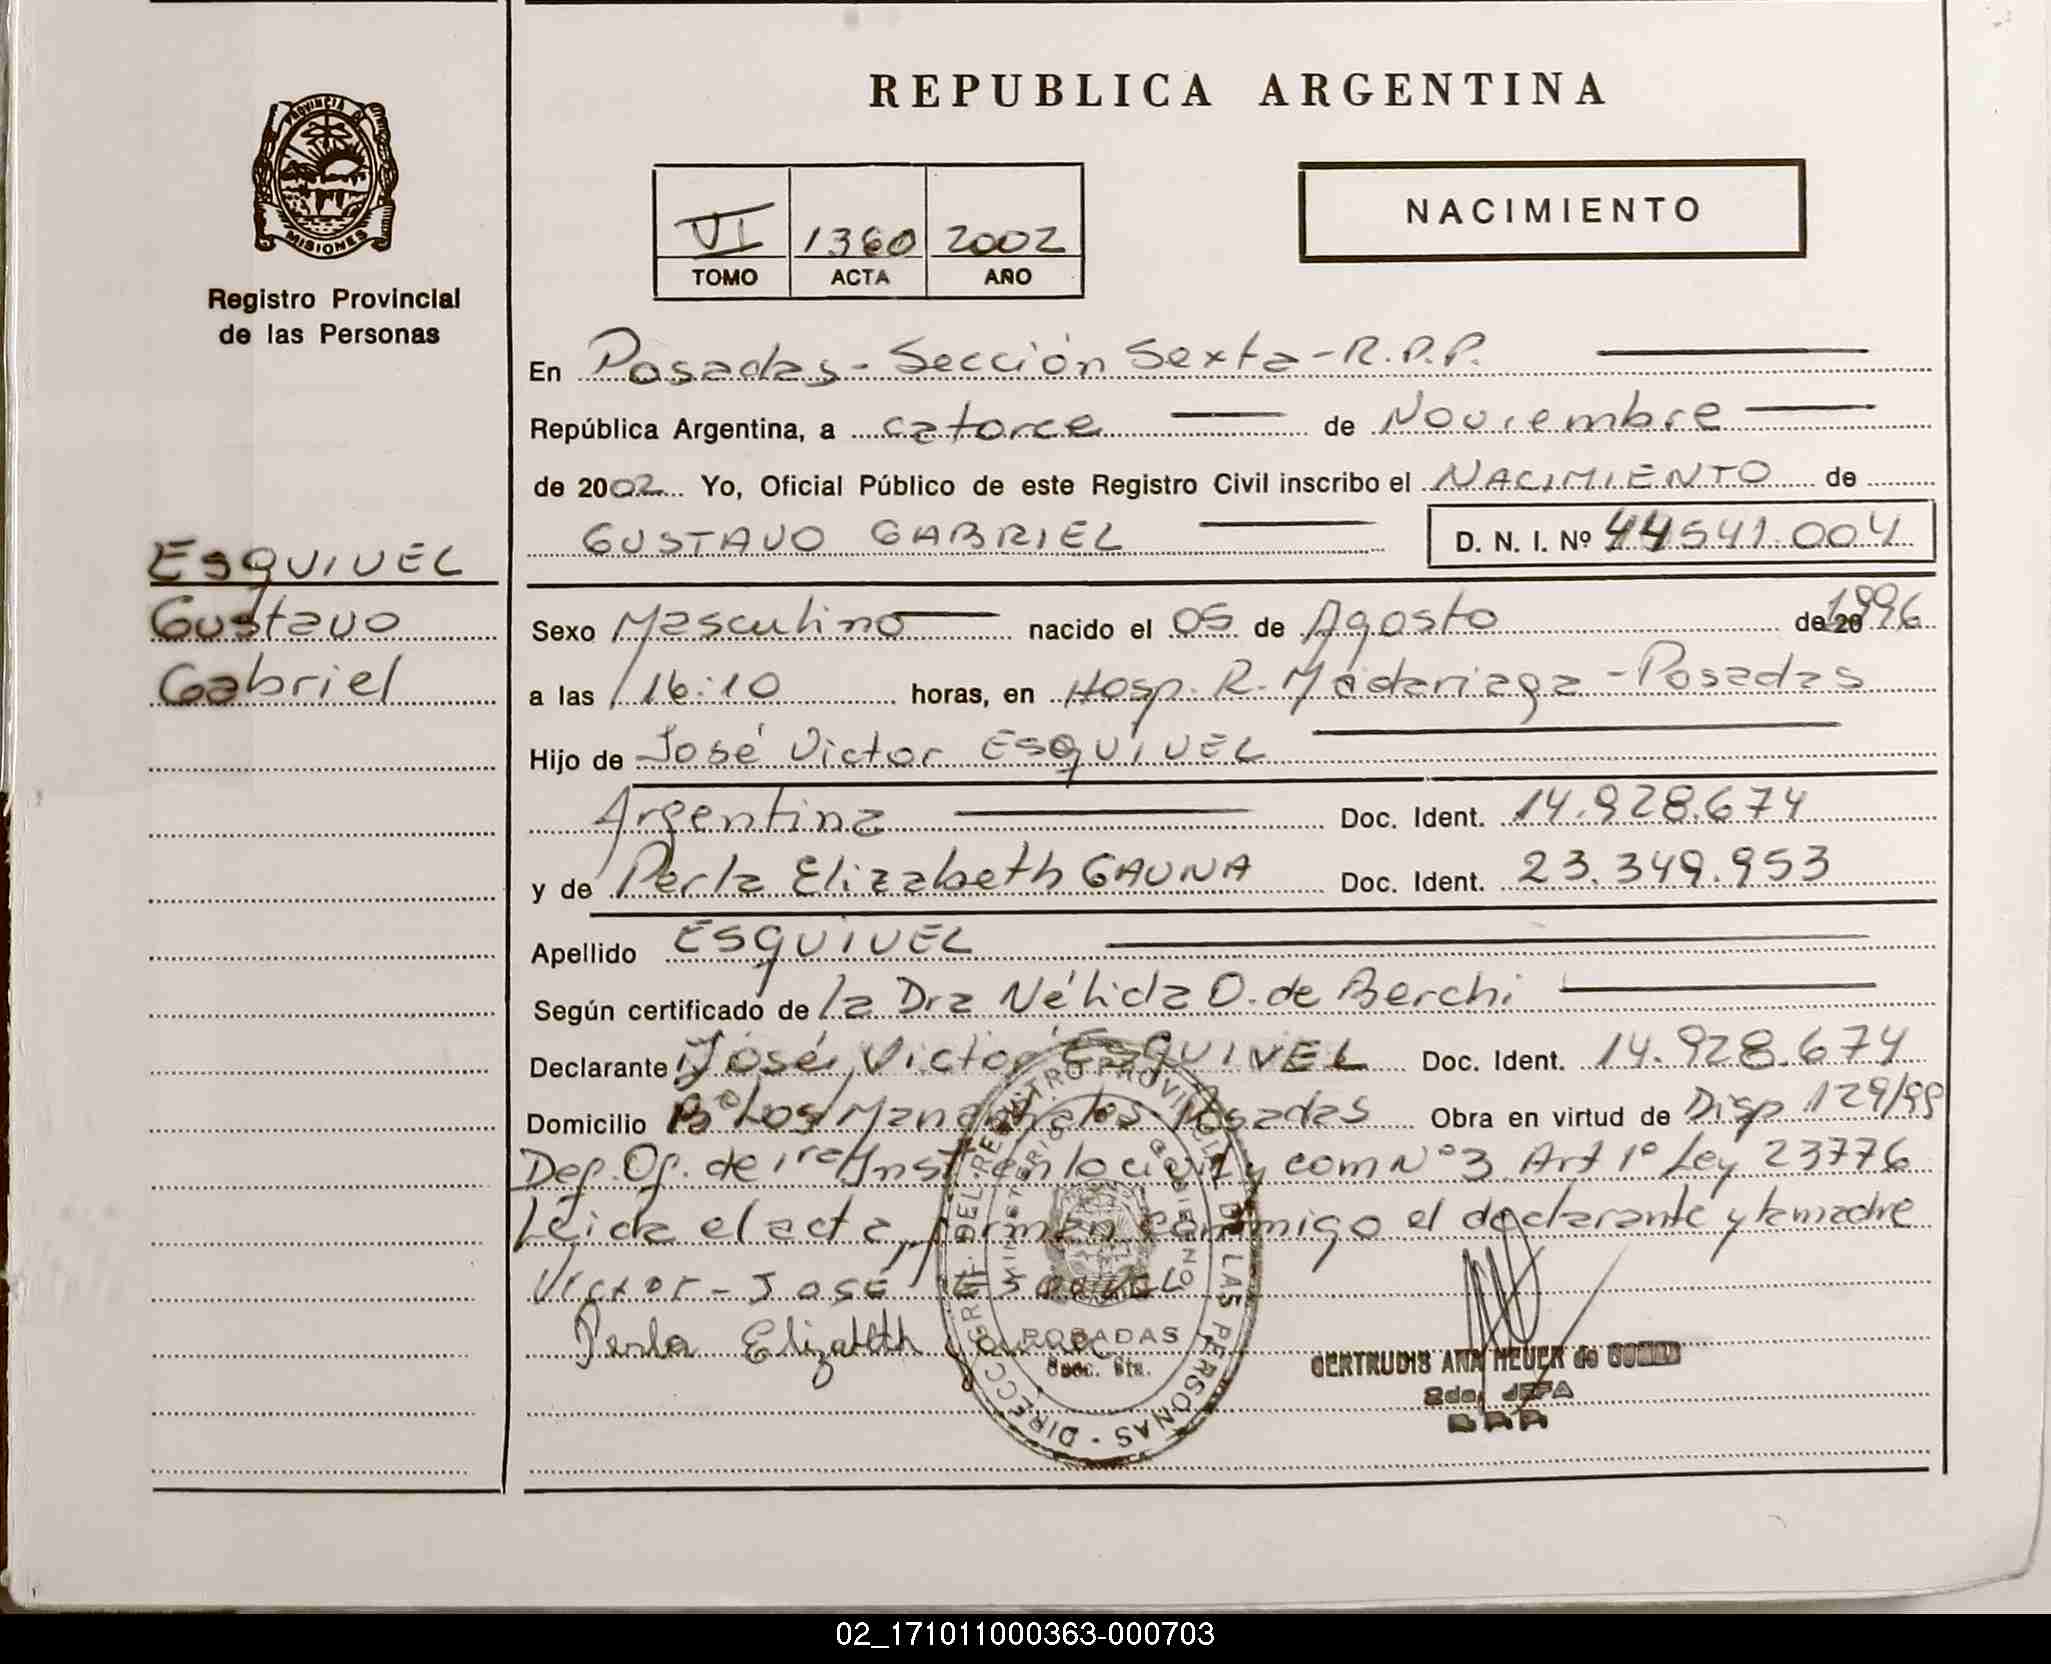 REPUBLICA ARGENTINA
PROVINCIA DE
MISIONES
Registro Provincial
de las Personas
NACIMIENTO
VI 1360 2002
TOMO ACTA AÑO
En Posadas - Sección Sexta - R.P.P.
República Argentina, a catorce de Noviembre
de 2002 Yo, Oficial Público de este Registro Civil inscribo el NACIMIENTO de
GUSTAVO GABRIEL D. N. I. Nº 44541.004
ESQUIVEL
Gustavo
Gabriel
Sexo Masculino nacido el 05 de Agosto de 1996
a las 16:10 horas, en Hosp. R. Madariaga - Posadas
Hijo de José Victor ESQUIVEL
Argentina Doc. Ident. 14.928.674
y de Perla Elizabeth GAUNA Doc. Ident. 23.349.953
Apellido ESQUIVEL
Según certificado de la Dra Nélida O. de Berchi
Declarante José Victor ESQUIVEL Doc. Ident. 14.928.674
Domicilio Bº Los Posadas Obra en virtud de Disp 129/99
Dep. Of. de 1ra Inst en lo civil y com Nº 3 Art 1º Ley 23776
Leida el acta, firman conmigo el declarante y la madre
Victor - José ESQUIVEL
Perla Elizabeth Gauna
DIRECC. GRAL. DEL REGISTRO PROVINCIAL DE LAS PERSONAS
MINISTERIO GOBIERNO
POSADAS
Secc. 6ta.
GERTRUDIS ANA HEUER de
2da. JEFA
R P P
02_171011000363-000703